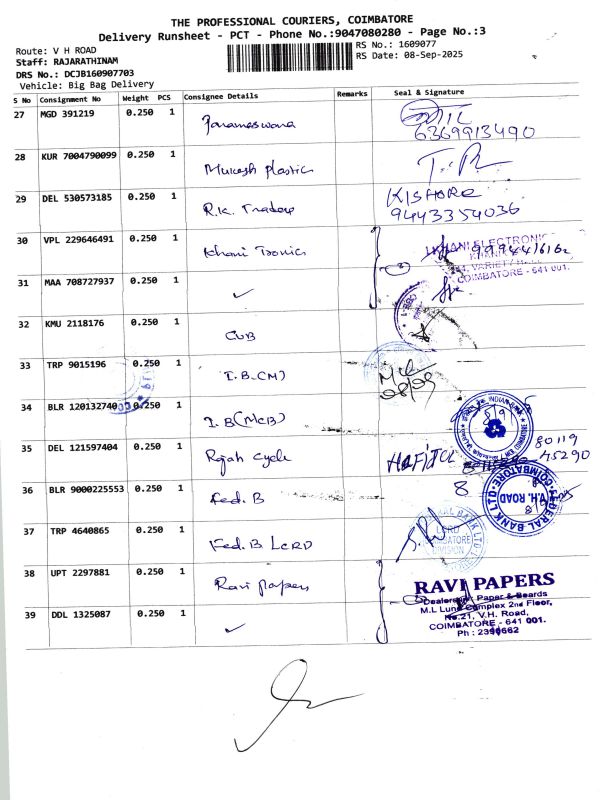 THE PROFESSIONAL COURIERS, COIMBATORE
Delivery Runsheet - PCT - Phone No.:9047080280 - Page No.:3
Route: V H ROAD
RS No.: 1609077
Staff: RAJARATHINAM
RS Date: 08-Sep-2025
DRS No.: DCJB160907703
Vehicle: Big Bag Delivery
S No Consignment No Weight PCS Consignee Details Remarks Seal & Signature
27 MGD 391219 0.250 1 Parameswara
6369913490
28 KUR 7004790099 0.250 1 Mukesh plastic
29 DEL 530573185 0.250 1 R.K. Traders KISHORE
9443354036
30 VPL 229646491 0.250 1 Khani Tronics KHANI ELECTRONIC
VARIETY
COIMBATORE - 641 001.
31 MAA 708727937 0.250 1 ✓
32 KMU 2118176 0.250 1 CUB
33 TRP 9015196 0.250 1 I.B.(M)
34 BLR 120132740 0.250 1 I.B(MCB)
35 DEL 121597404 0.250 1 Rajah cycle 80119
45290
36 BLR 9000225553 0.250 1 Fed. B 8
FEDERAL BANK LTD COIMBATORE
V.H. ROAD
37 TRP 4640865 0.250 1 Fed. B LCRD
LCRD
COIMBATORE
DIVISION
38 UPT 2297881 0.250 1 Ravi papers RAVI PAPERS
Dealers in: Paper & Boards
M.L Luna Complex 2nd Floor,
No.21, V.H. Road,
COIMBATORE - 641 001.
Ph : 2390662
39 DDL 1325087 0.250 1 ✓